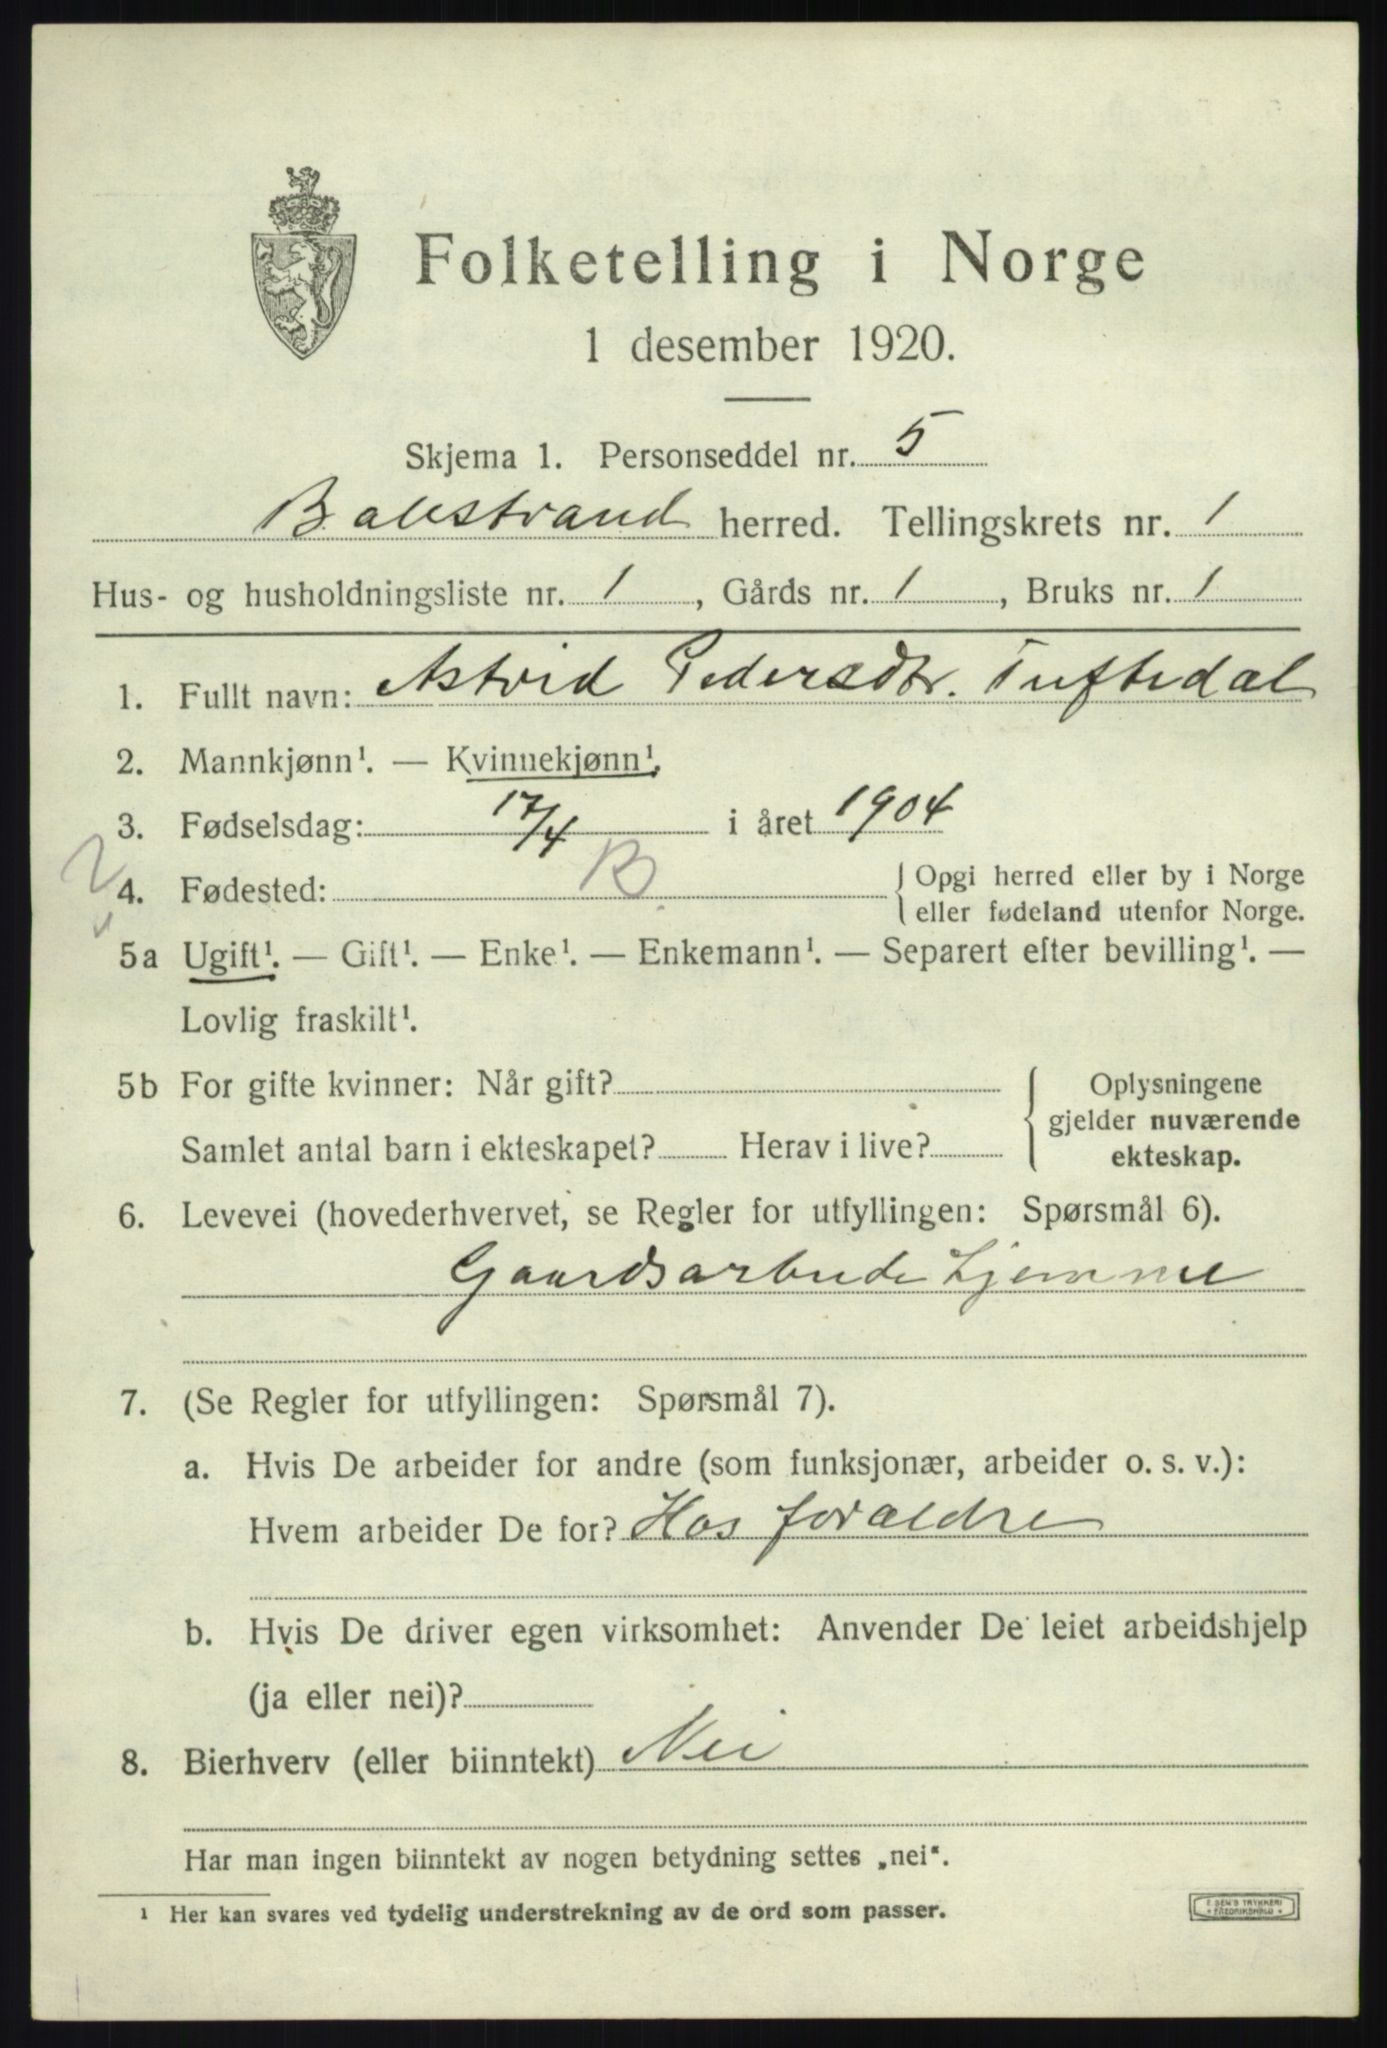 Folketelling i Norge
1 desember 1920.
Skjema 1. Personseddel nr. 5
Balestrand herred. Tellingskrets nr. 1
Hus- og husholdningsliste nr. 1, Gårds nr. 1, Bruks nr. 1
1. Fullt navn: Astrid Pedersdtr. Tuftedal
2. Mannkjønn¹. — Kvinnekjønn¹.
3. Fødselsdag: 17/4 i året 1904
4. Fødested: B. {Opgi herred eller by i Norge
eller fødeland utenfor Norge.
5a Ugift¹. — Gift¹. — Enke¹. — Enkemann¹. — Separert efter bevilling¹. —
Lovlig fraskilt¹.
5b For gifte kvinner: Når gift? { Oplysningene
gjelder nuværende
Samlet antal barn i ekteskapet? Herav i live? ekteskap.
6. Levevei (hovederhvervet, se Regler for utfyllingen: Spørsmål 6).
Gaardsarbeide hjemme
7. (Se Regler for utfyllingen: Spørsmål 7).
a. Hvis De arbeider for andre (som funksjonær, arbeider o. s. v.):
Hvem arbeider De for? Hos foraeldre
b. Hvis De driver egen virksomhet: Anvender De leiet arbeidshjelp
(ja eller nei)?
8. Bierhverv (eller biinntekt) Nei
Har man ingen biinntekt av nogen betydning settes „nei“.
¹ Her kan svares ved tydelig understrekning av de ord som passer.